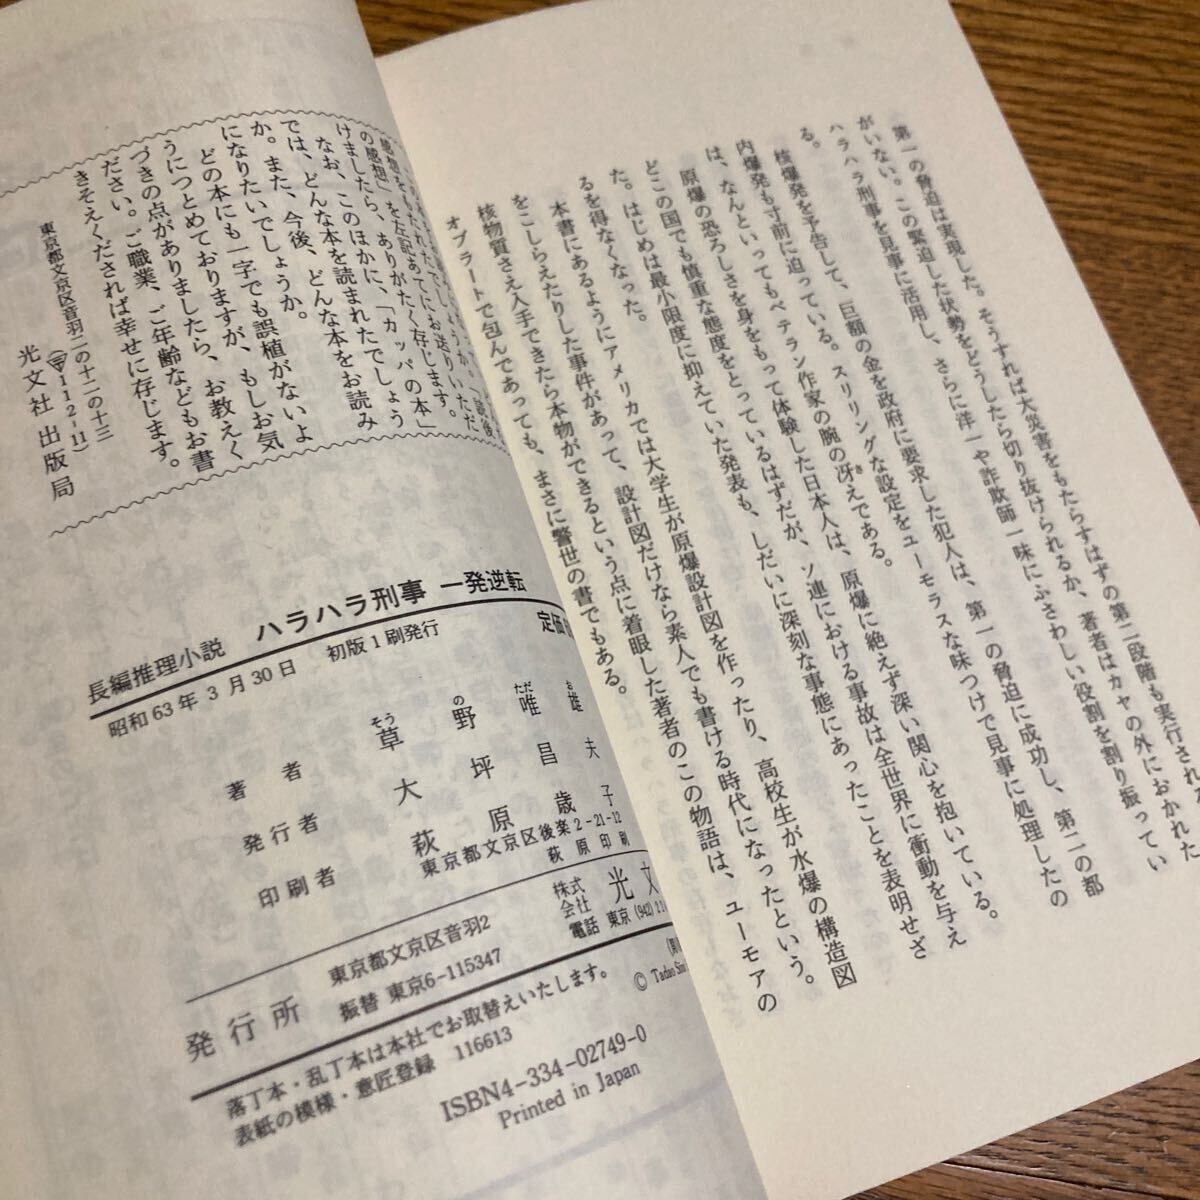 第一の脅迫は実現した。そうすれば大災害をもたらすはずの第二段階も実行される
がいない。この緊迫した状勢をどうしたら切り抜けられるか、著者はカヤの外におかれた
ハラハラ刑事を見事に活用し、さらに洋一や詐欺師一味にふさわしい役割を割り振ってい
る。
核爆発を予告して、巨額の金を政府に要求した犯人は、第一の脅迫に成功し、第二の都
内爆発も寸前に迫っている。スリリングな設定をユーモラスな味つけで見事に処理したの
は、なんといってもベテラン作家の腕の冴えである。
原爆の恐ろしさを身をもって体験した日本人は、原爆に絶えず深い関心を抱いている。
どこの国でも慎重な態度をとっているはずだが、ソ連における事故は全世界に衝動を与え
た。はじめは最小限度に抑えていた発表も、しだいに深刻な事態にあったことを表明せざ
るを得なくなった。
本書にあるようにアメリカでは大学生が原爆設計図を作ったり、高校生が水爆の構造図
をこしらえたりした事件があって、設計図だけなら素人でも書ける時代になったという。
核物質さえ入手できたら本物ができるという点に着眼した著者のこの物語は、ユーモアの
オブラートで包んであっても、まさに警世の書でもある。
感想をもたれたでしょうか。「読後
の感想」を左記あてにお送りいただ
けましたら、ありがたく存じます。
なお、このほかに、「カッパの本」
では、どんな本を読まれたでしょう
か。また、今後、どんな本をお読み
になりたいでしょうか。
どの本にも一字でも誤植がないよ
うにつとめておりますが、もしお気
づきの点がありましたら、お教えく
ださい。ご職業、ご年齢などもお書
きそえくだされば幸せに存じます。
東京都文京区音羽二の十二の十三
(〒112-11)
光文社出版局
長編推理小説 ハラハラ刑事 一発逆転 定価
昭和63年3月30日 初版1刷発行
著者 草野唯雄
そう の ただ お
発行者 大坪昌夫
印刷者 萩原歳子
東京都文京区後楽2-21-12
萩原印刷
発行所
東京都文京区音羽2
振替 東京6-115347
株式会社 光文
電話 東京(942)
© Tadao
落丁本・乱丁本は本社でお取替えいたします。
表紙の模様・意匠登録 116613
ISBN4-334-02749-0
Printed in Japan